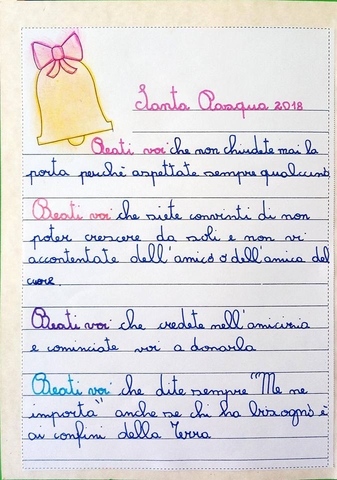 Santa Pasqua 2018
Beati voi che non chiudete mai la
porta perchè aspettate sempre qualcuno
Beati voi che siete convinti di non
poter crescere da soli e non vi
accontentate dell'amico o dell'amica del
cuore.
Beati voi che credete nell'amicinia
e cominciate voi a donarla
Beati voi che dite sempre "Me ne
importa" anche se chi ha bisogno è
ai confini della Terra